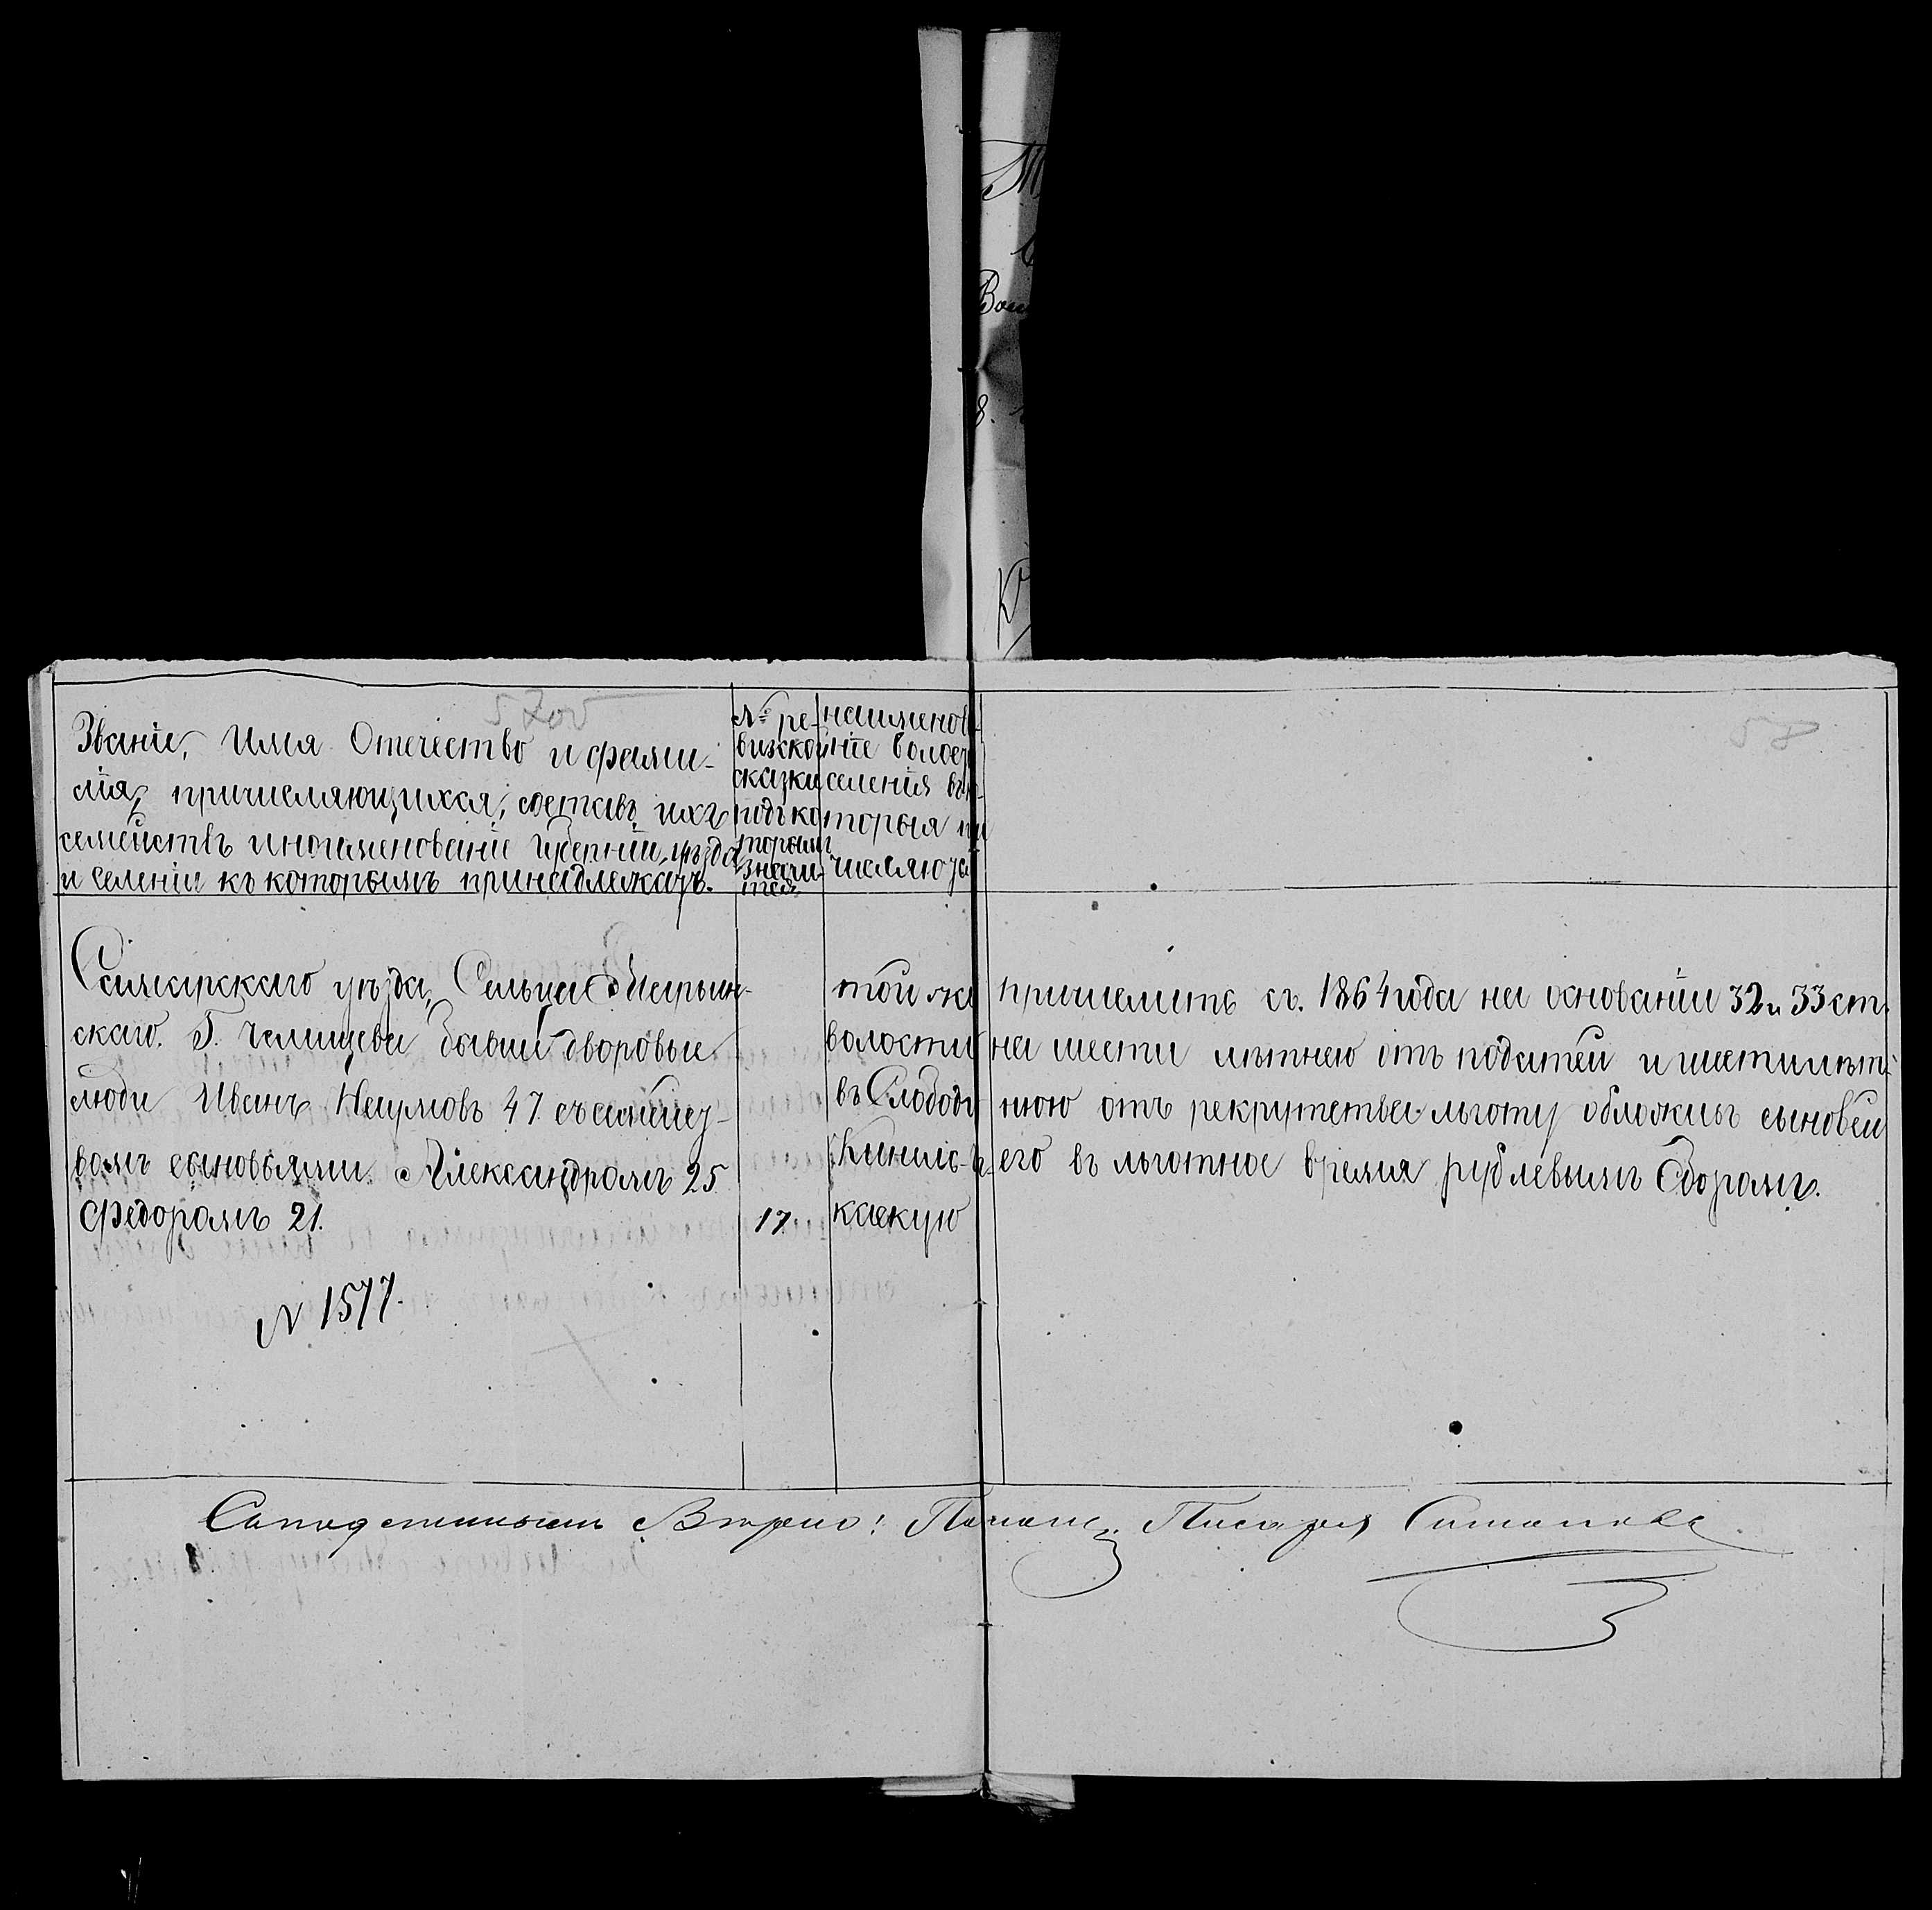 57об
58
Званіе, Имя Отечество и фами-
лія, причисляющихся, составъ ихъ
семействъ инаименованіе Губерніи, уѣзда
и Селенія къ которымъ принадлежатъ.
№ ре-
визской
сказки
подъ ко
торымъ
значи-
тся
наименова-
ніе волост
селенія въ ко-
торыя при
числяются
Самарскаго уѣзда, Сельца
скаго. Г. Челищева бывшій дворовые
люди Иванъ Наумовъ 47. съ
вомъ сыновьями. Александромъ 25
Федоромъ 21.
17.
той же
волости
въ Слободу
Кинель-
скую
причислить съ. 1864 года на основаніи 32 и 33 ст.
на шести лѣтнею отъ податей и шестилѣт
нюю отъ рекрутства льготу обложивъ сыновей
его въ льготное время рублевымъ Сборомъ.
N 1577.
Вѣрно: Писаря